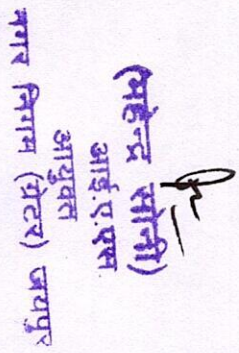 (महेन्द्र सोनी)
आई.ए.एस.
आयुक्त
नगर निगम (ग्रेटर) जयपुर